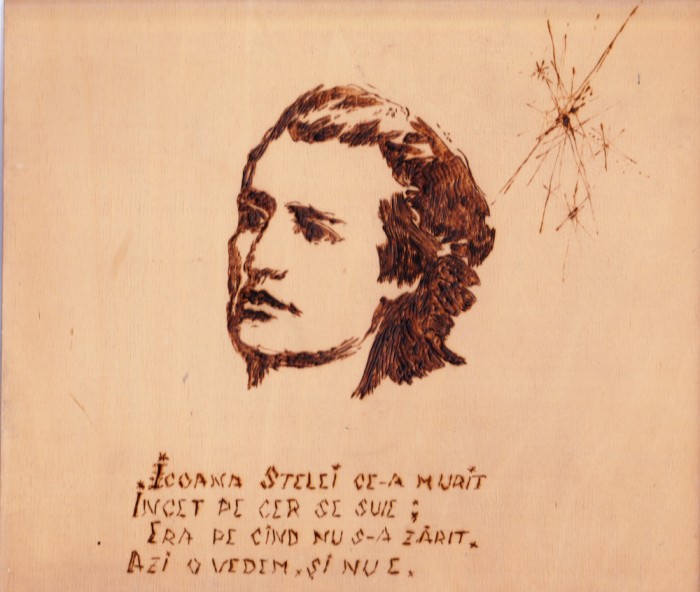 Icoana Stelei ce-a murit
Încet pe cer se suie ;
Era pe cînd nu s-a zărit.
Azi o vedem, şi nu e.